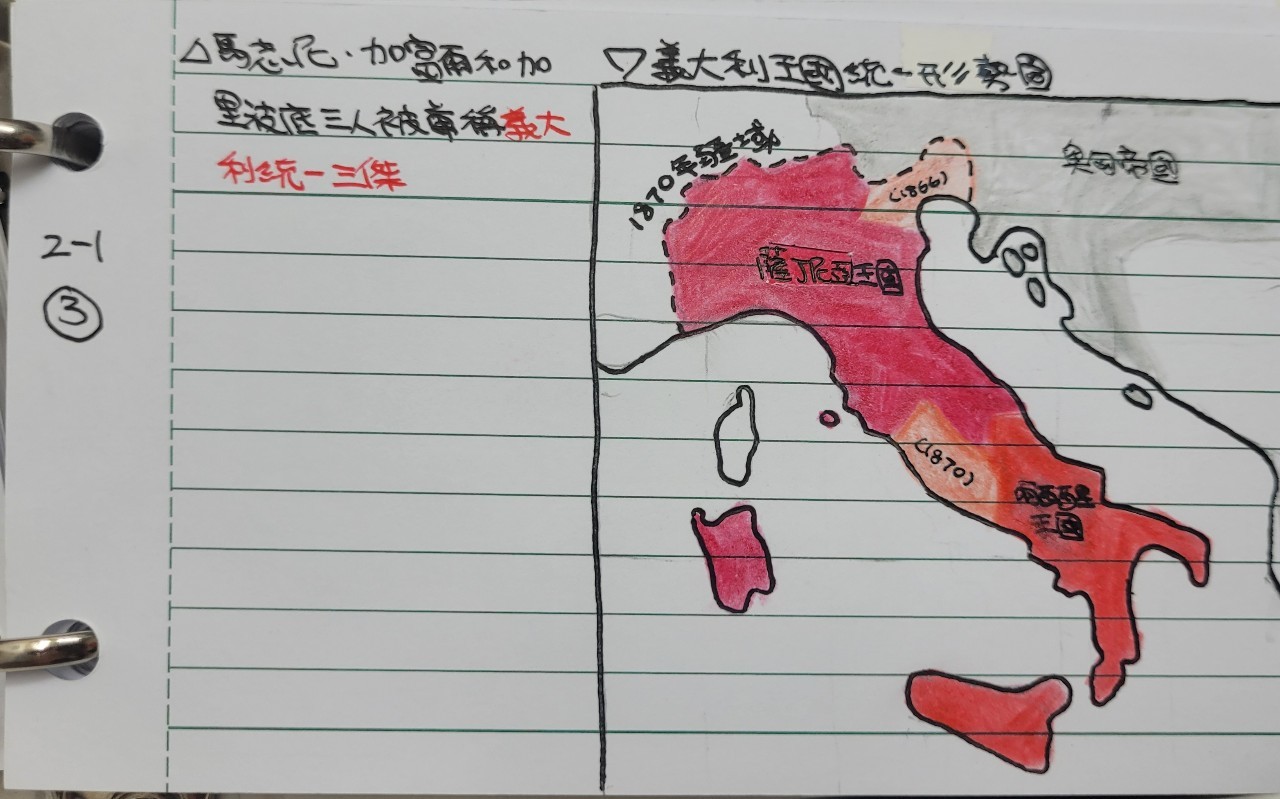 △馬志尼·加富爾和加
里波底三人被尊稱義大
利統一三傑
2-1
③
▽義大利王國統一形勢圖
1870年疆域
(1866)
奧國帝國
薩丁尼亞王國
(1870)
兩西西里
王國